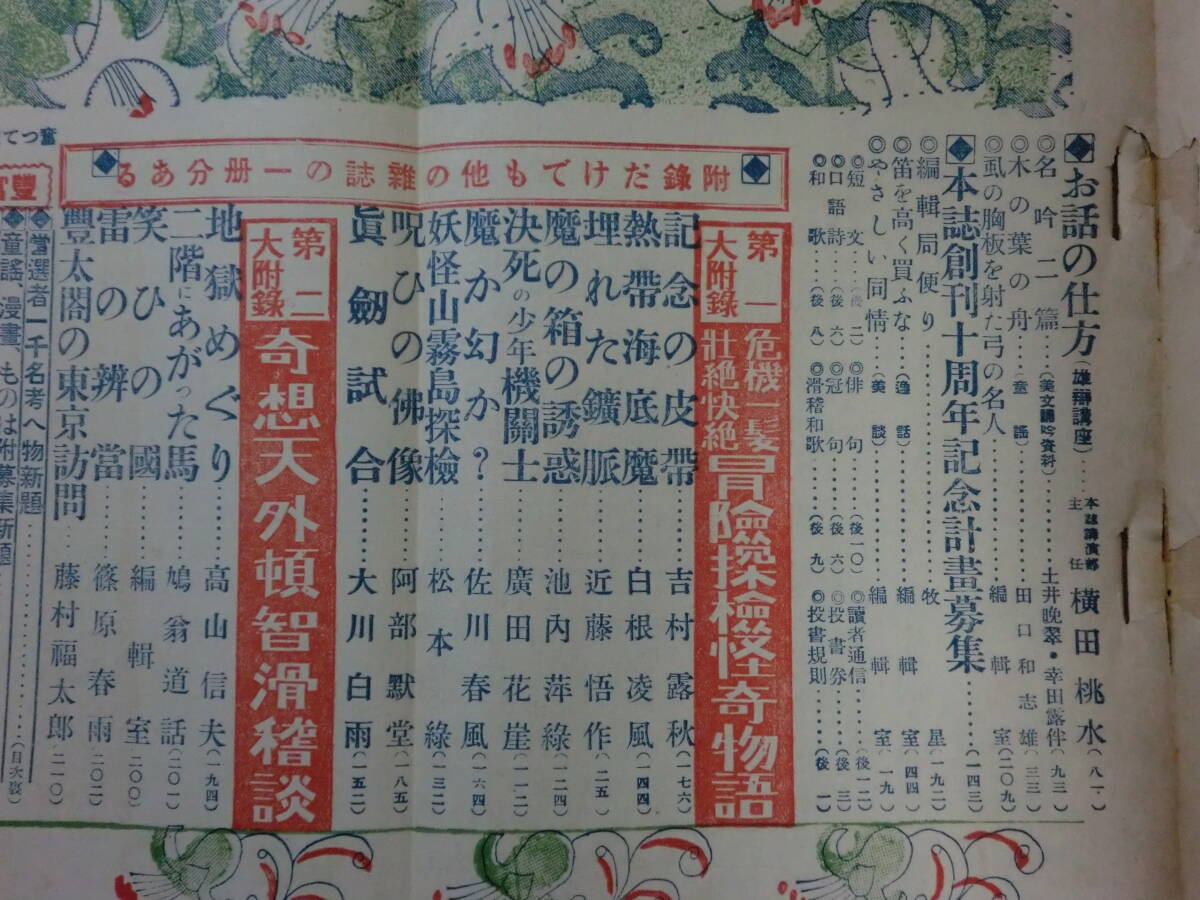 ◆お話の仕方(雄辯講座)……本誌講演部主任 横田桃水(八一)
◎名吟二篇(美文講吟資料)……土井晩翠・幸田露伴(九三)
◎木の葉の舟……童謠……田口和志雄(三三)
◎虱の胸板を射た弓の名人……編輯室(二〇九)
◆本誌創刊十周年記念計畫募集……(一四三)
◎編輯局便り……牧星(一九二)
◎笛を高く買ふな(逸話)……編輯室(四四)
◎やさしい同情(美談)……編輯室(一九)
◎短文(後二)◎俳句(後一〇)◎讀者通信(後一二)
◎口語詩(後六)◎冠句(後六)◎投書券(後三)
◎和歌(後八)◎滑稽和歌(後九)◎投書規則(後一)
◆附錄だけでも他の雜誌の一册分ある◆
第一大附錄 危機一髮壯絶快絶 冒險探檢怪奇物語
記念の皮帶……吉村露秋(一七六)
熱帶海底魔……白根凌風(一四四)
埋れた鑛脈……近藤悟作(一二五)
魔の箱の誘惑……池內萍綠(一二四)
決死の少年機關士……廣田花崖(一一二)
魔か幻か?……佐川春風(一六四)
妖怪山霧島探檢……松本綠(一三二)
呪ひの佛像……阿部默堂(一八五)
眞劒試合……大川白雨(一五二)
第二大附錄 奇想天外頓智滑稽談
地獄めぐり……高山信夫(一九四)
二階にあがった馬……鳩翁道話(二〇一)
笑ひの國……編輯室(二〇〇)
雷の辨當……篠原春雨(二〇二)
豐太閤の東京訪問……藤村福太郎(二一〇)
◆當選者一千名考へ物新題……(目次裏)
◆童謠、漫畫、もの は附募集新題
奮つて
豐富